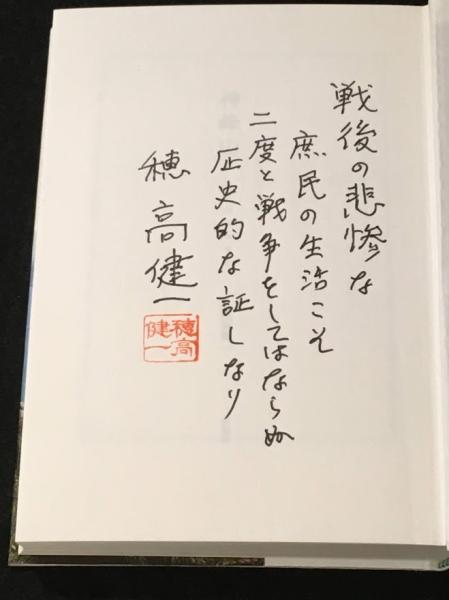 戦後の悲惨な
庶民の生活こそ
二度と戦争をしてはならぬ
歴史的な証しなり
穂高健一
穂高
健一